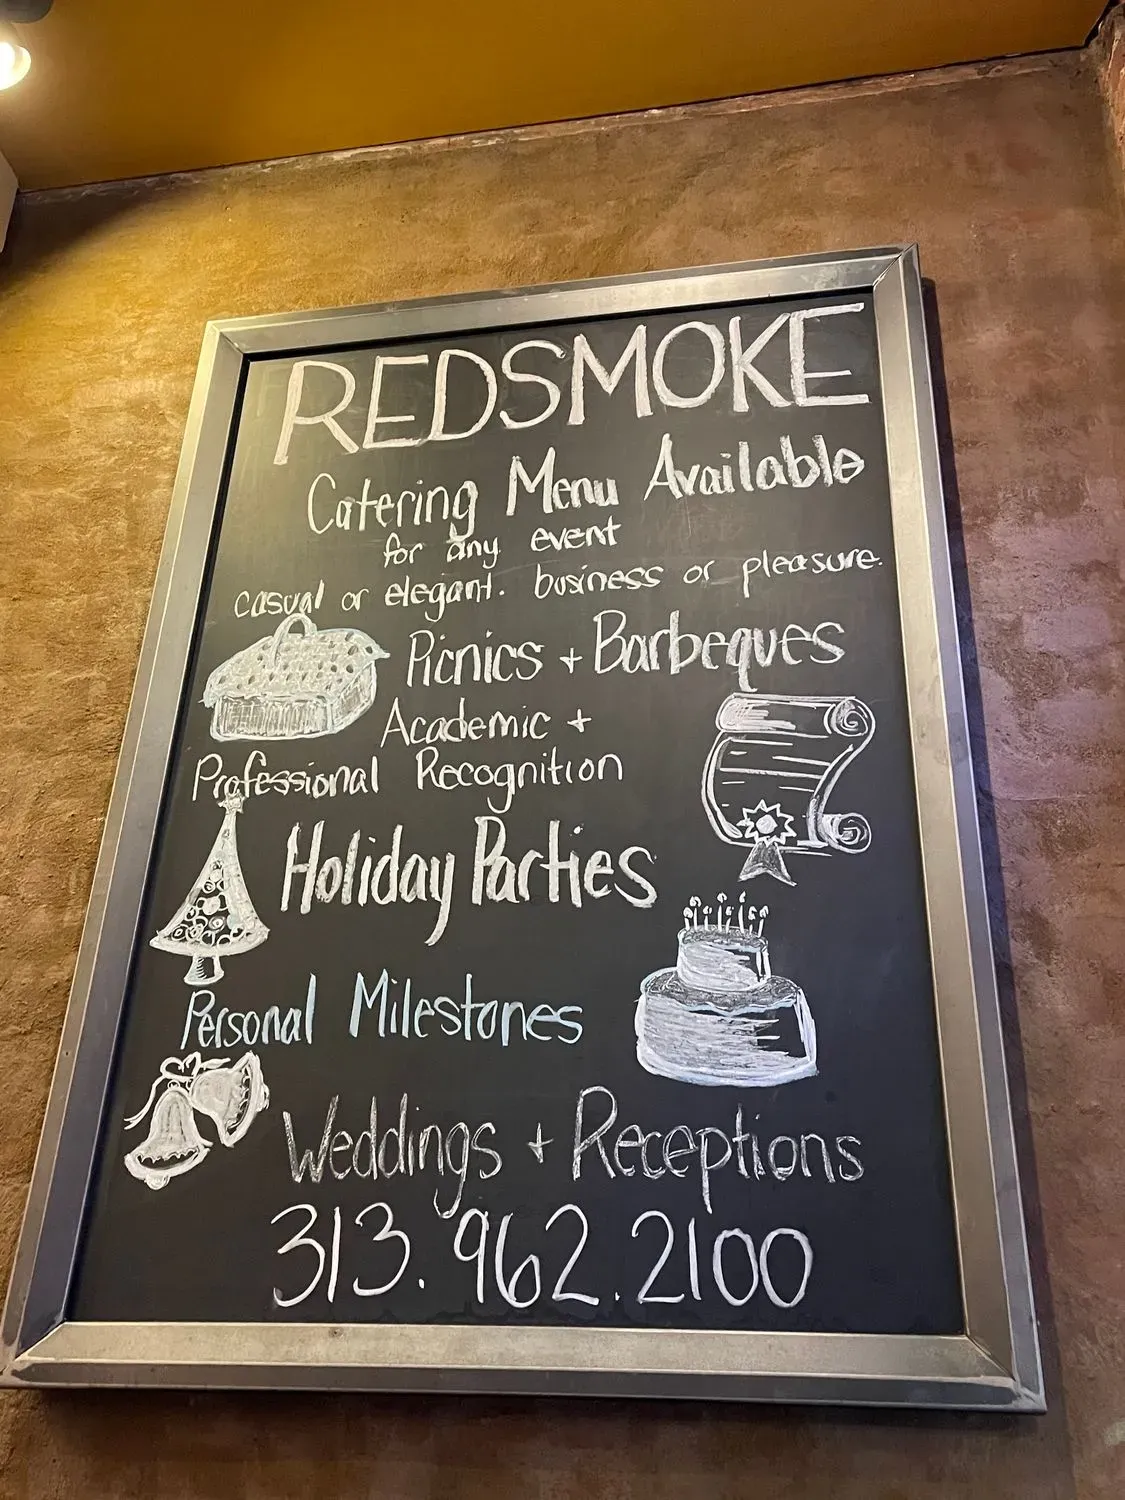 REDSMOKE
Catering Menu Available
for any event
casual or elegant. business or pleasure.
Picnics + Barbeques
Academic +
Professional Recognition
Holiday Parties
Personal Milestones
Weddings + Receptions
313.962.2100